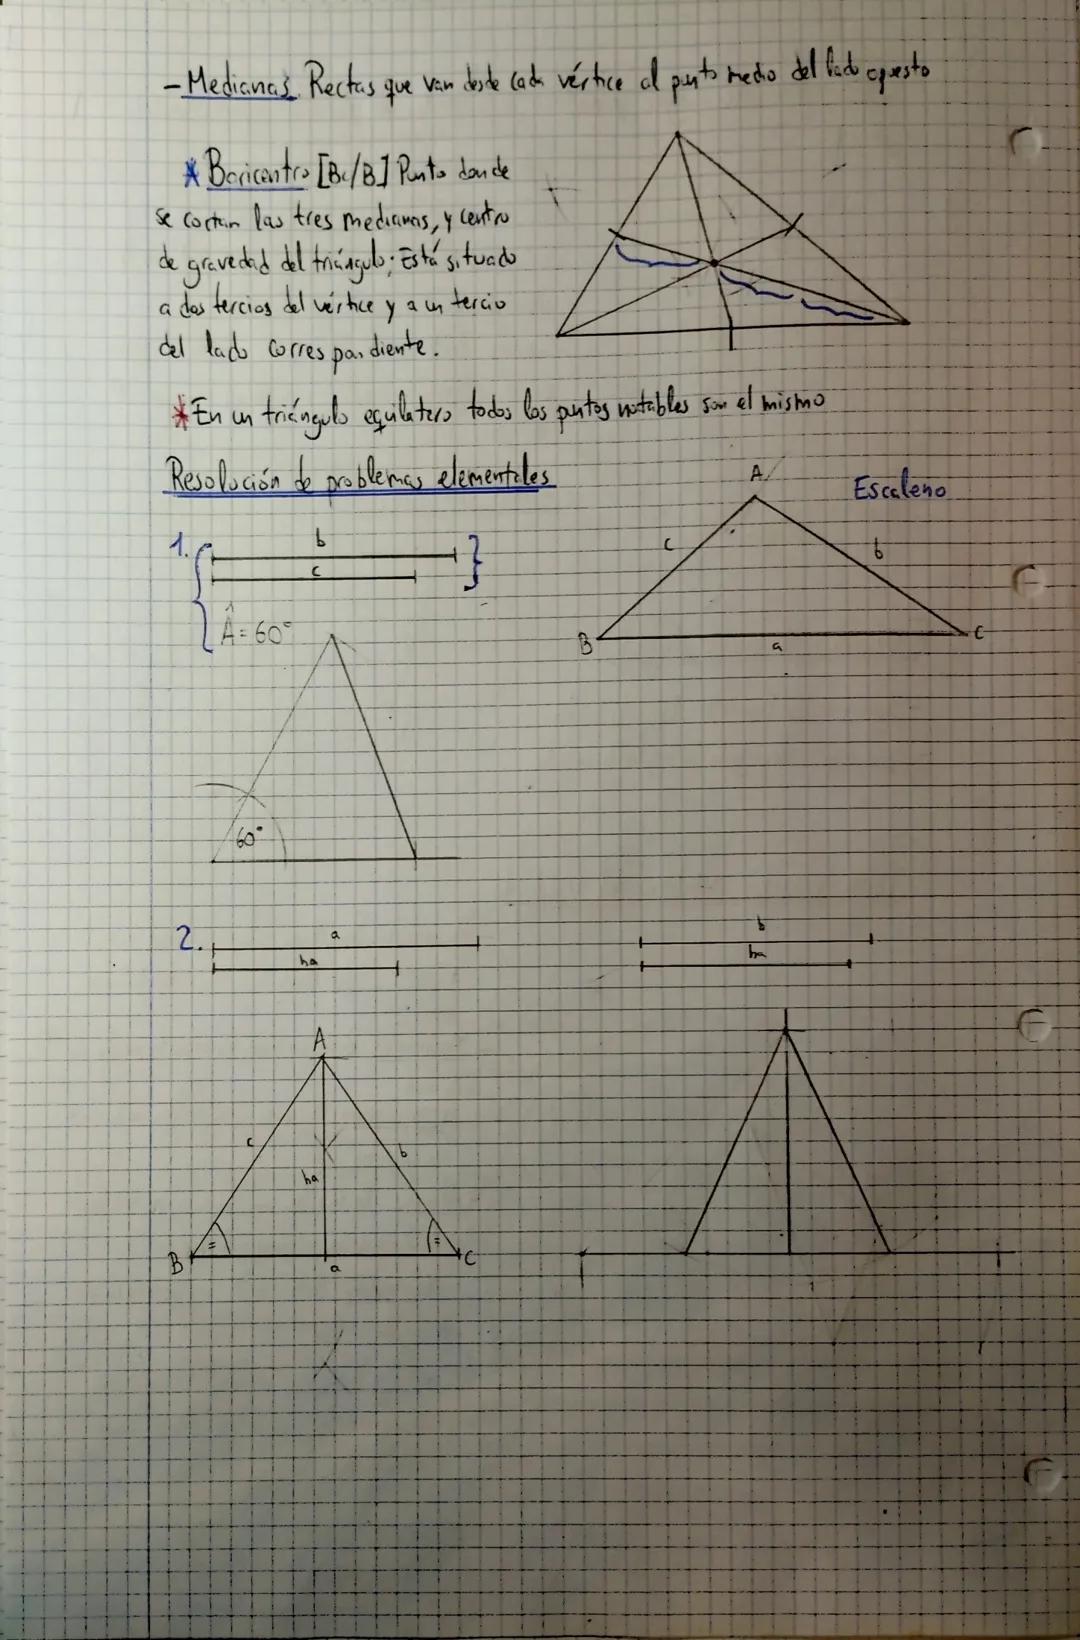 - Medianas Rectas que van desde cada vértice al punto medio del lado opuesto
* Baricentro [Bc/B] Punto donde
se cortan las tres medianas, y centro
de gravedad del triángulo; Está situado
a dos tercios del vértice y a un tercio
del lado correspondiente.
* En un triángulo equilatero todos los puntos notables son el mismo
Resolución de problemas elementales
A
Escaleno
c
b
B
a
C
1.
b
c
Â=60°
60°
2.
a
ha
b
ha
A
c
b
ha
=
=
B
a
C